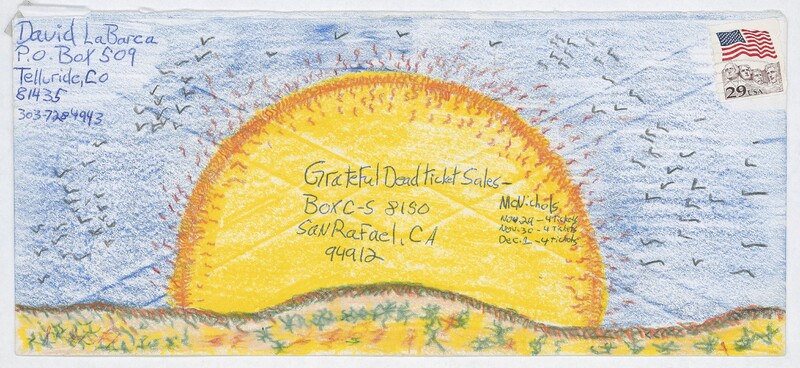 David LaBarca
P.O. Box 509
Telluride, Co
81435
303-728-4943
29 USA
Grateful Dead ticket Sales-
Box C-S 8150
San Rafael, CA
94912
McNichols
Nov. 29 - 4 Tickets
Nov. 30 - 4 Tickets
Dec. 1 - 4 Tickets